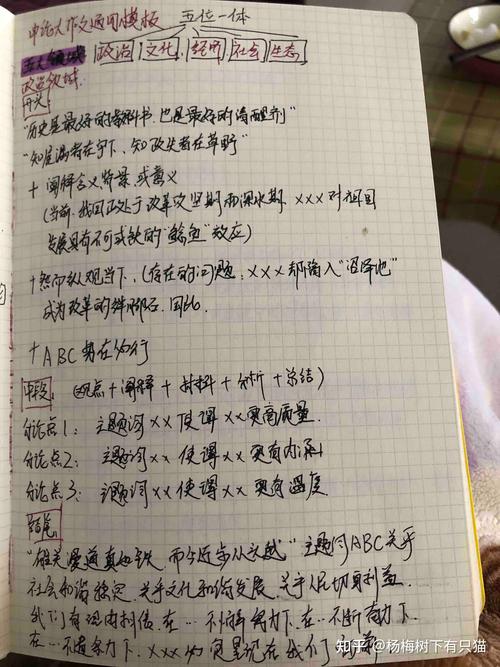 申论大作文通用模板 五位一体
五大领域 政治 文化 经济 社会 生态
政治领域
开头
"历史是最好的教科书,也是最好的清醒剂"
"知屋漏者在宇下,知政失者在草野"
+ 阐释含义背景或意义
(当前,我国正处于改革攻坚期和深水期,xxx对祖国
发展具有不可或缺的"鲶鱼"效应)
+然而纵观当下,(存在的问题:xxx却陷入"沼泽地"
成为改革的绊脚石,因此,
+ABC势在必行
中段 (观点+阐释+材料+分析+总结)
分论点1: 主题词xx使得xx更高质量
分论点2: 主题词xx使得xx更有内涵
分论点3: 主题词xx使得xx更有温度
结尾
"雄关漫道真如铁,而今迈步从头越"主题词ABC关乎
社会和谐稳定,关乎文化和谐发展,关乎人民切身利益,
我们有理由相信在…不懈努力下,在…不断奋力下,
在…不懈努力下,xxx的
知乎 @杨梅树下有只猫